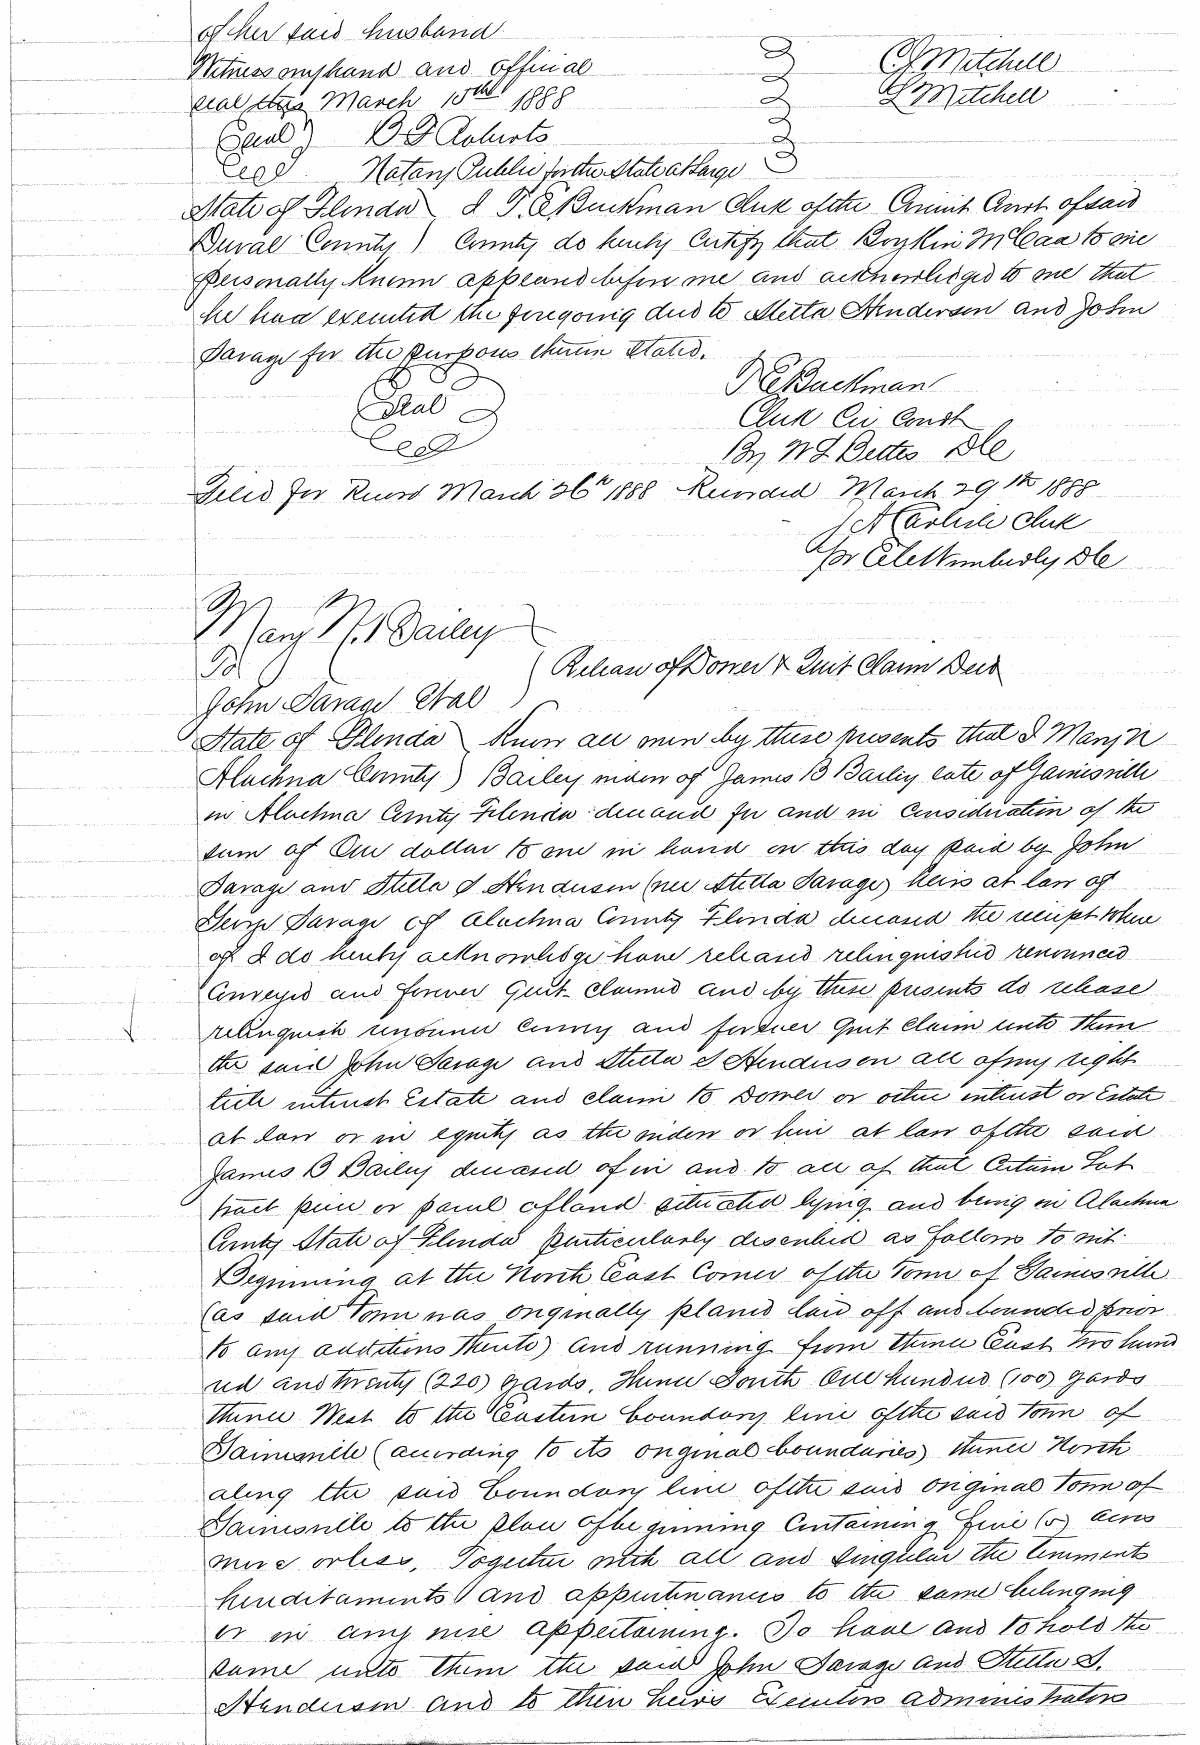 of her said husband
Witness my hand and official
seal this March 15th 1888
C J Mitchell
L Mitchell
(Seal) B F Roberts
Notary Public for the State at Large
State of Florida ) I T. E. Buckman Clerk of the Circuit Court of said
Duval County ) County do hereby Certify that Boykin McCaa to me
personally known appeared before me and acknowledged to me that
he had executed the foregoing deed to Stella Henderson and John
Savage for the purposes therein stated.
T E Buckman
(Seal)
Clerk Cir Court
By W L Bettes DC
Filed for Record March 26th 1888 Recorded March 29th 1888
J A Carlisle Clerk
pr Wimberly DC
Mary N. Bailey
To
Release of Dower & Quit Claim Deed
John Savage Et al
State of Florida ) Know all men by these presents that I Mary N
Alachua County ) Bailey widow of James B Bailey late of Gainesville
in Alachua County Florida deceased for and in Consideration of the
sum of One dollar to me in hand on this day paid by John
Savage and Stella S Henderson (nee Stella Savage) heirs at law of
George Savage of Alachua County Florida deceased the receipt where
of I do hereby acknowledge have released relinquished renounced
Conveyed and forever Quit-Claimed and by these presents do release
relinquish renounce Convey and forever Quit Claim unto them
the said John Savage and Stella S Henderson all of my right
title interest Estate and claim to Dower or other interest or Estate
at law or in equity as the widow or heir at law of the said
James B Bailey deceased of in and to all of that Certain Lot
tract piece or parcel of land situated lying and being in Alachua
County State of Florida particularly described as follows to wit:
Beginning at the North East Corner of the Town of Gainesville
(as said Town was originally planed laid off and bounded prior
to any additions thereto) and running from thence East two hund
red and twenty (220) yards, thence South One hundred (100) yards
thence West to the Eastern boundary line of the said town of
Gainesville (according to its original boundaries) thence North
along the said boundary line of the said original Town of
Gainesville to the place of beginning Containing five (5) acres
more or less. Together with all and singular the tenements
hereditaments and appurtenances to the same belonging
or in any wise appertaining. To have and to hold the
same unto them the said John Savage and Stella S.
Henderson and to their heirs Executors administrators